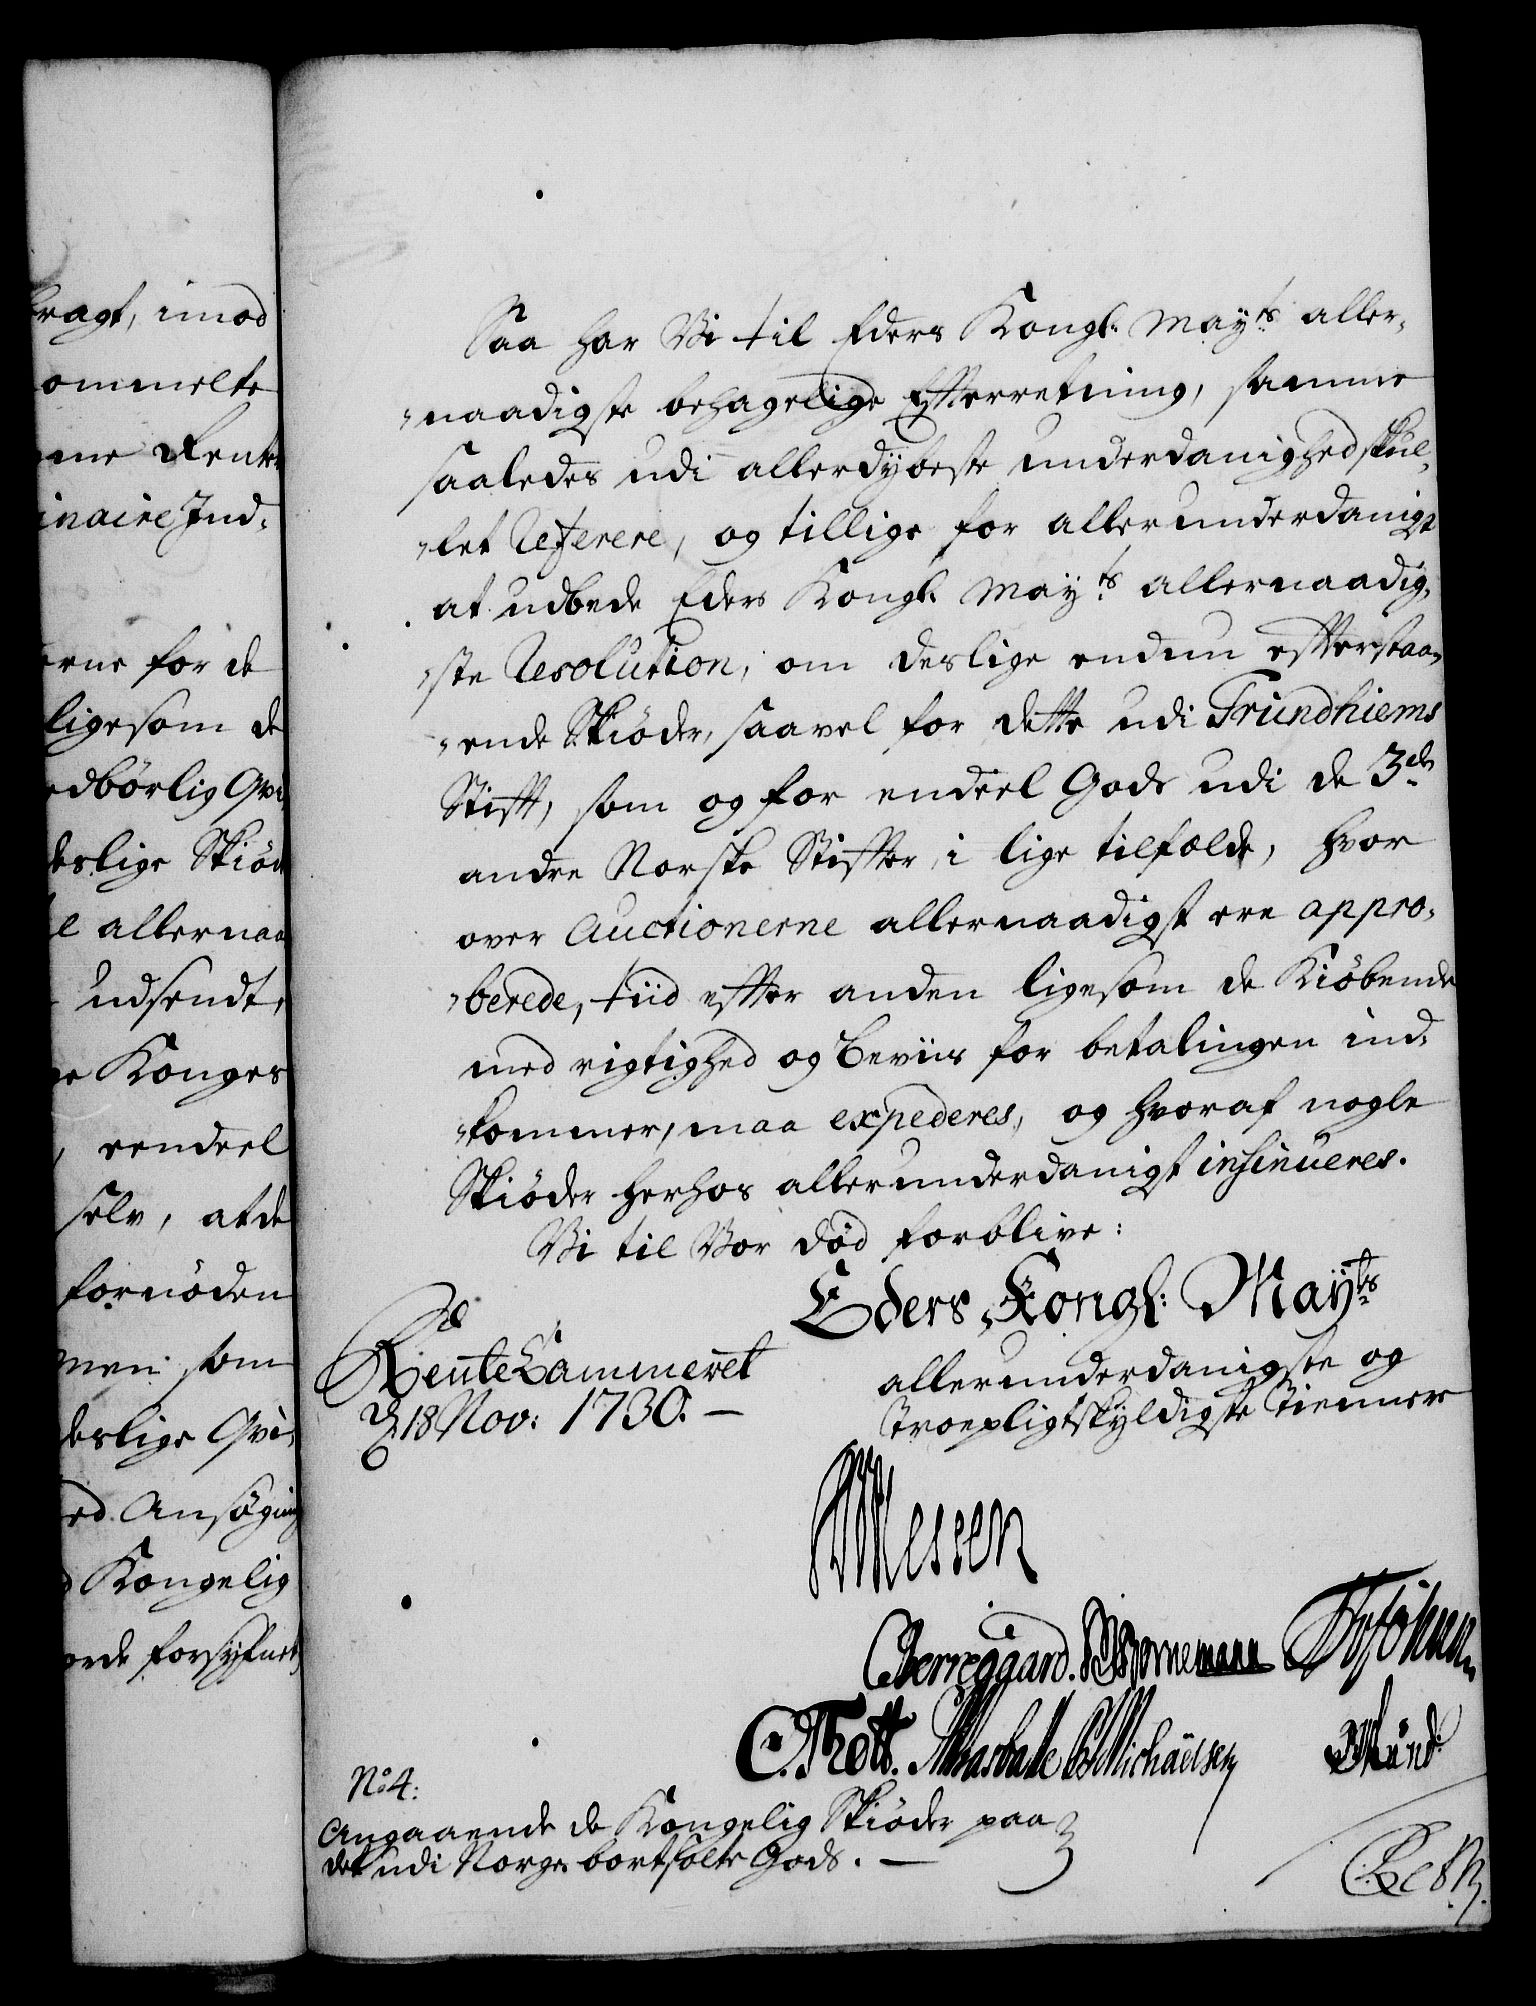 bragt, imod
ommelte
me Rente
inaire Ind-
erne for de
ligesom de
edbörlig Qvi
deslige Skiöd
allernaa
udsendt,
ge Konges
, eendeel
selv, at de
fornöden
men som
deslige Qvi-
ed Ansøgning
Kongelig
orde forsyfnet
Saa har Vi til Eders Kongl: Mayts aller-
"naadigste behagelige Efterretning, samme
saaledes udi allerdybeste underdanighed skul-
"let Referere, og tillige for allerunderdanigst
at udbede Eders Kongl: Mayts allernaadig-
"ste Resolution, om deslige endnu efterstaa-
"ende Skiöder, saavel for dette udi Trundhiems
Stift, som og for endeel Gods udi de 3de
andre Norske Stifter i lige tilfælde, hvor
over Auctionerne allernaadigst ere appro-
"berede, tiid efter anden ligesom de Kiöbende
med rigtighed og Beviis for betalingen ind-
"kommer, maa expederes, og hvoraf nogle
Skiöder herhos allerunderdanigst insinueres.
Vi til Vor Död forblive:
Eders Kongl: Mayts
allerunderdanigste og
Troepligtskyldigste Tiennere
RenteCammeret
d 18 Nov: 1730. –
Wessen
CBenegaard. Bornemann
C. Thott. Michaelsen Lund
No 4:
Angaaende de Kongelig Skiöder paa
det udi Norge bortsolte Gods. –